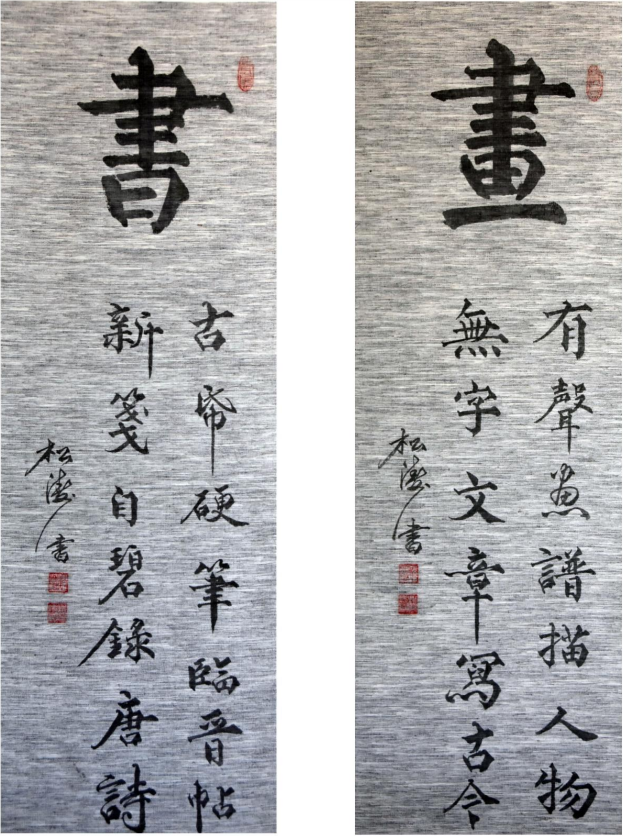 書
古帋硬筆臨晉帖
新箋自碧錄唐詩
松濤書
畫
有聲畫譜描人物
無字文章寫古今
松濤書